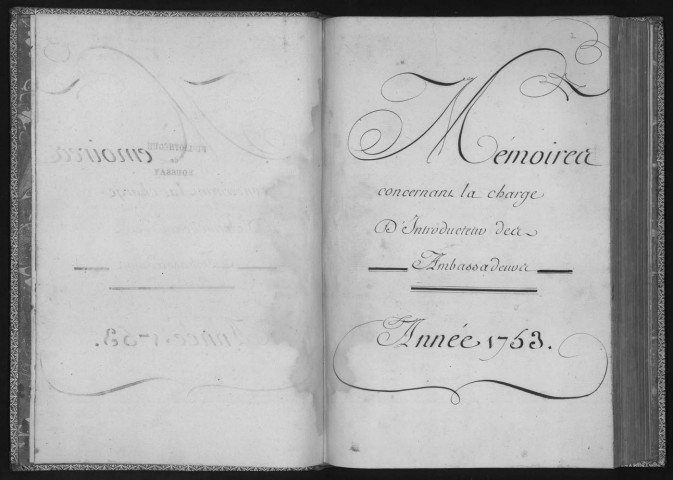 Mémoires
concernant la charge
D'Introducteur des
Ambassadeurs
Année 1753.